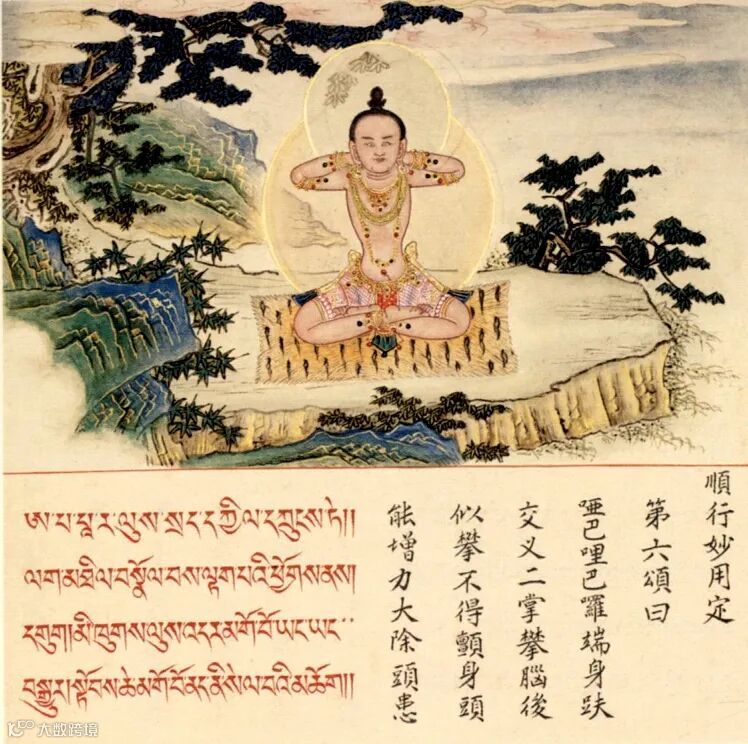 順行妙用定
第六頌曰
啞巴哩巴囉端身趺
交义二掌攀腦後
似攀不得顫身頭
能增力大除頭患
ཨ་པ་པཱ་ར་ལུས་སྲང་ད་ཀྱིལ་དཀྲུངས་ཏེ།།
ལག་མཐིལ་བསྣོལ་བས་ལྟག་པའི་ཕྱོགས་ནས།
དགུག།མི་ཁུགས་ལུས་འདར་མགོ་བོ་ཡང་ཡང་
བསྒྱུར།སྟོབས་ཆེ་མགོ་བོ་ནད་ནི་སེལ་བའི་མཆོག།།
大数跨境